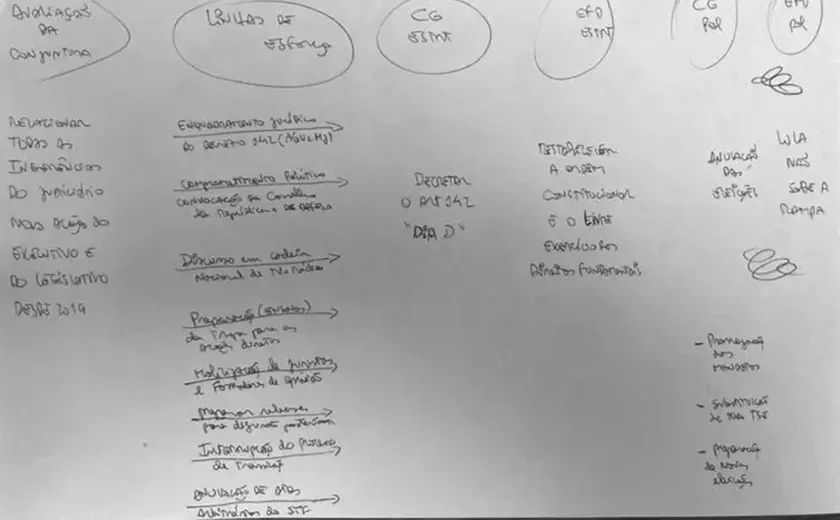 AVALIAÇÃO
DA
CONJUNTURA
RELACIONAR
TODAS AS
INGERÊNCIAS
DO JUDICIÁRIO
NAS AÇÕES DO
EXECUTIVO E
DO LEGISLATIVO
DESDE 2019
LINHAS DE
ESFORÇO
ENQUADRAMENTO JURÍDICO
DO DECRETO 142 (AGU e MJ)
COMPROMETIMENTO POLÍTICO
CONVOCAÇÃO DO CONSELHO
DA REPÚBLICA E DE DEFESA
DISCURSO EM CADEIA
NACIONAL DE TV E RÁDIO
PREPARAÇÃO
DA TROPA PARA AS
AÇÕES DIRETAS
MOBILIZAÇÃO DE JURISTAS
E FORMADORES DE OPINIÃO
PREPARAR
PARA
INTERRUPÇÃO DO PROCESSO
DE TRANSIÇÃO
ANULAÇÃO DE ATOS
ARBITRÁRIOS DO STF
CG
EF INT
DECRETAR
O ART 142
"DIA D"
EFD
EF INT
RESTABELECER
A ORDEM
CONSTITUCIONAL
E O LIVRE
EXERCÍCIO DOS
DIREITOS FUNDAMENTAIS
CG
POL
ANULAÇÃO
DAS
ELEIÇÕES
- PRORROGAÇÃO
DOS
MANDATOS
- SUBSTITUIÇÃO
DE TODO TSE
- PREPARAÇÃO
DE NOVAS
ELEIÇÕES
EFD
POL
LULA
NÃO
SOBE A
RAMPA